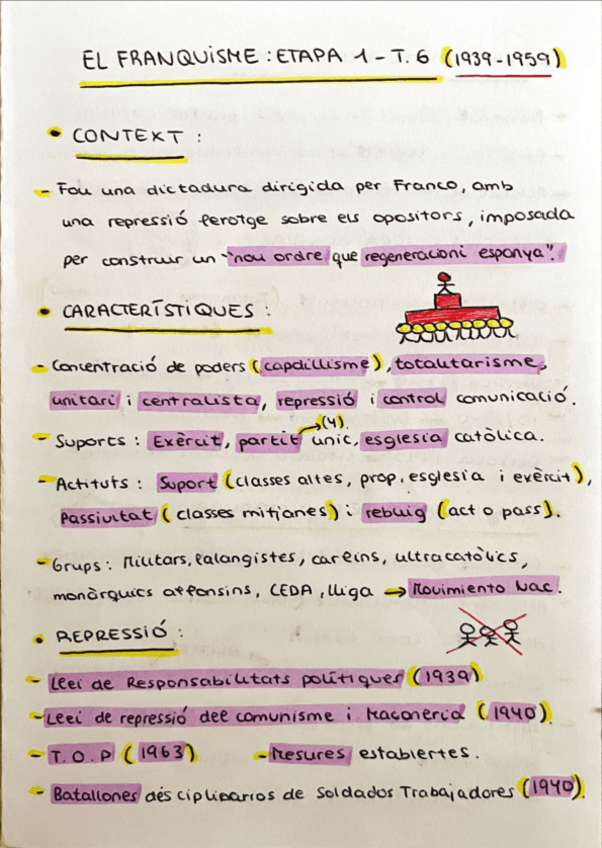 EL FRANQUISME : ETAPA 1 - T. 6 (1939-1959)
• CONTEXT :
- Fou una dictadura dirigida per Franco, amb
una repressió ferotge sobre els opositors, imposada
per construir un "nou ordre que regeneracioni espanya".
• CARACTERÍSTIQUES :
- Concentració de poders (capdillisme), totalitarisme,
unitari i centralista, repressió i control comunicació.
- Suports : Exèrcit, partit únic, església catòlica.
→ (4)
- Actituts : Suport (classes altes, prop, esglesia i exèrcit),
Passivitat (classes mitjanes) i rebuig (act o pass).
- Grups : Militars, falangistes, carlins, ultracatòlics,
monàrquics alfonsins, CEDA, lliga → Movimiento Nac.
• REPRESSIÓ :
- Llei de Responsabilitats polítiques (1939)
- Llei de repressió del comunisme i Maconeria (1940)
- T. O. P (1963) - Mesures establertes.
- Batallones désciplinarios de Soldados Trabajadores (1940).